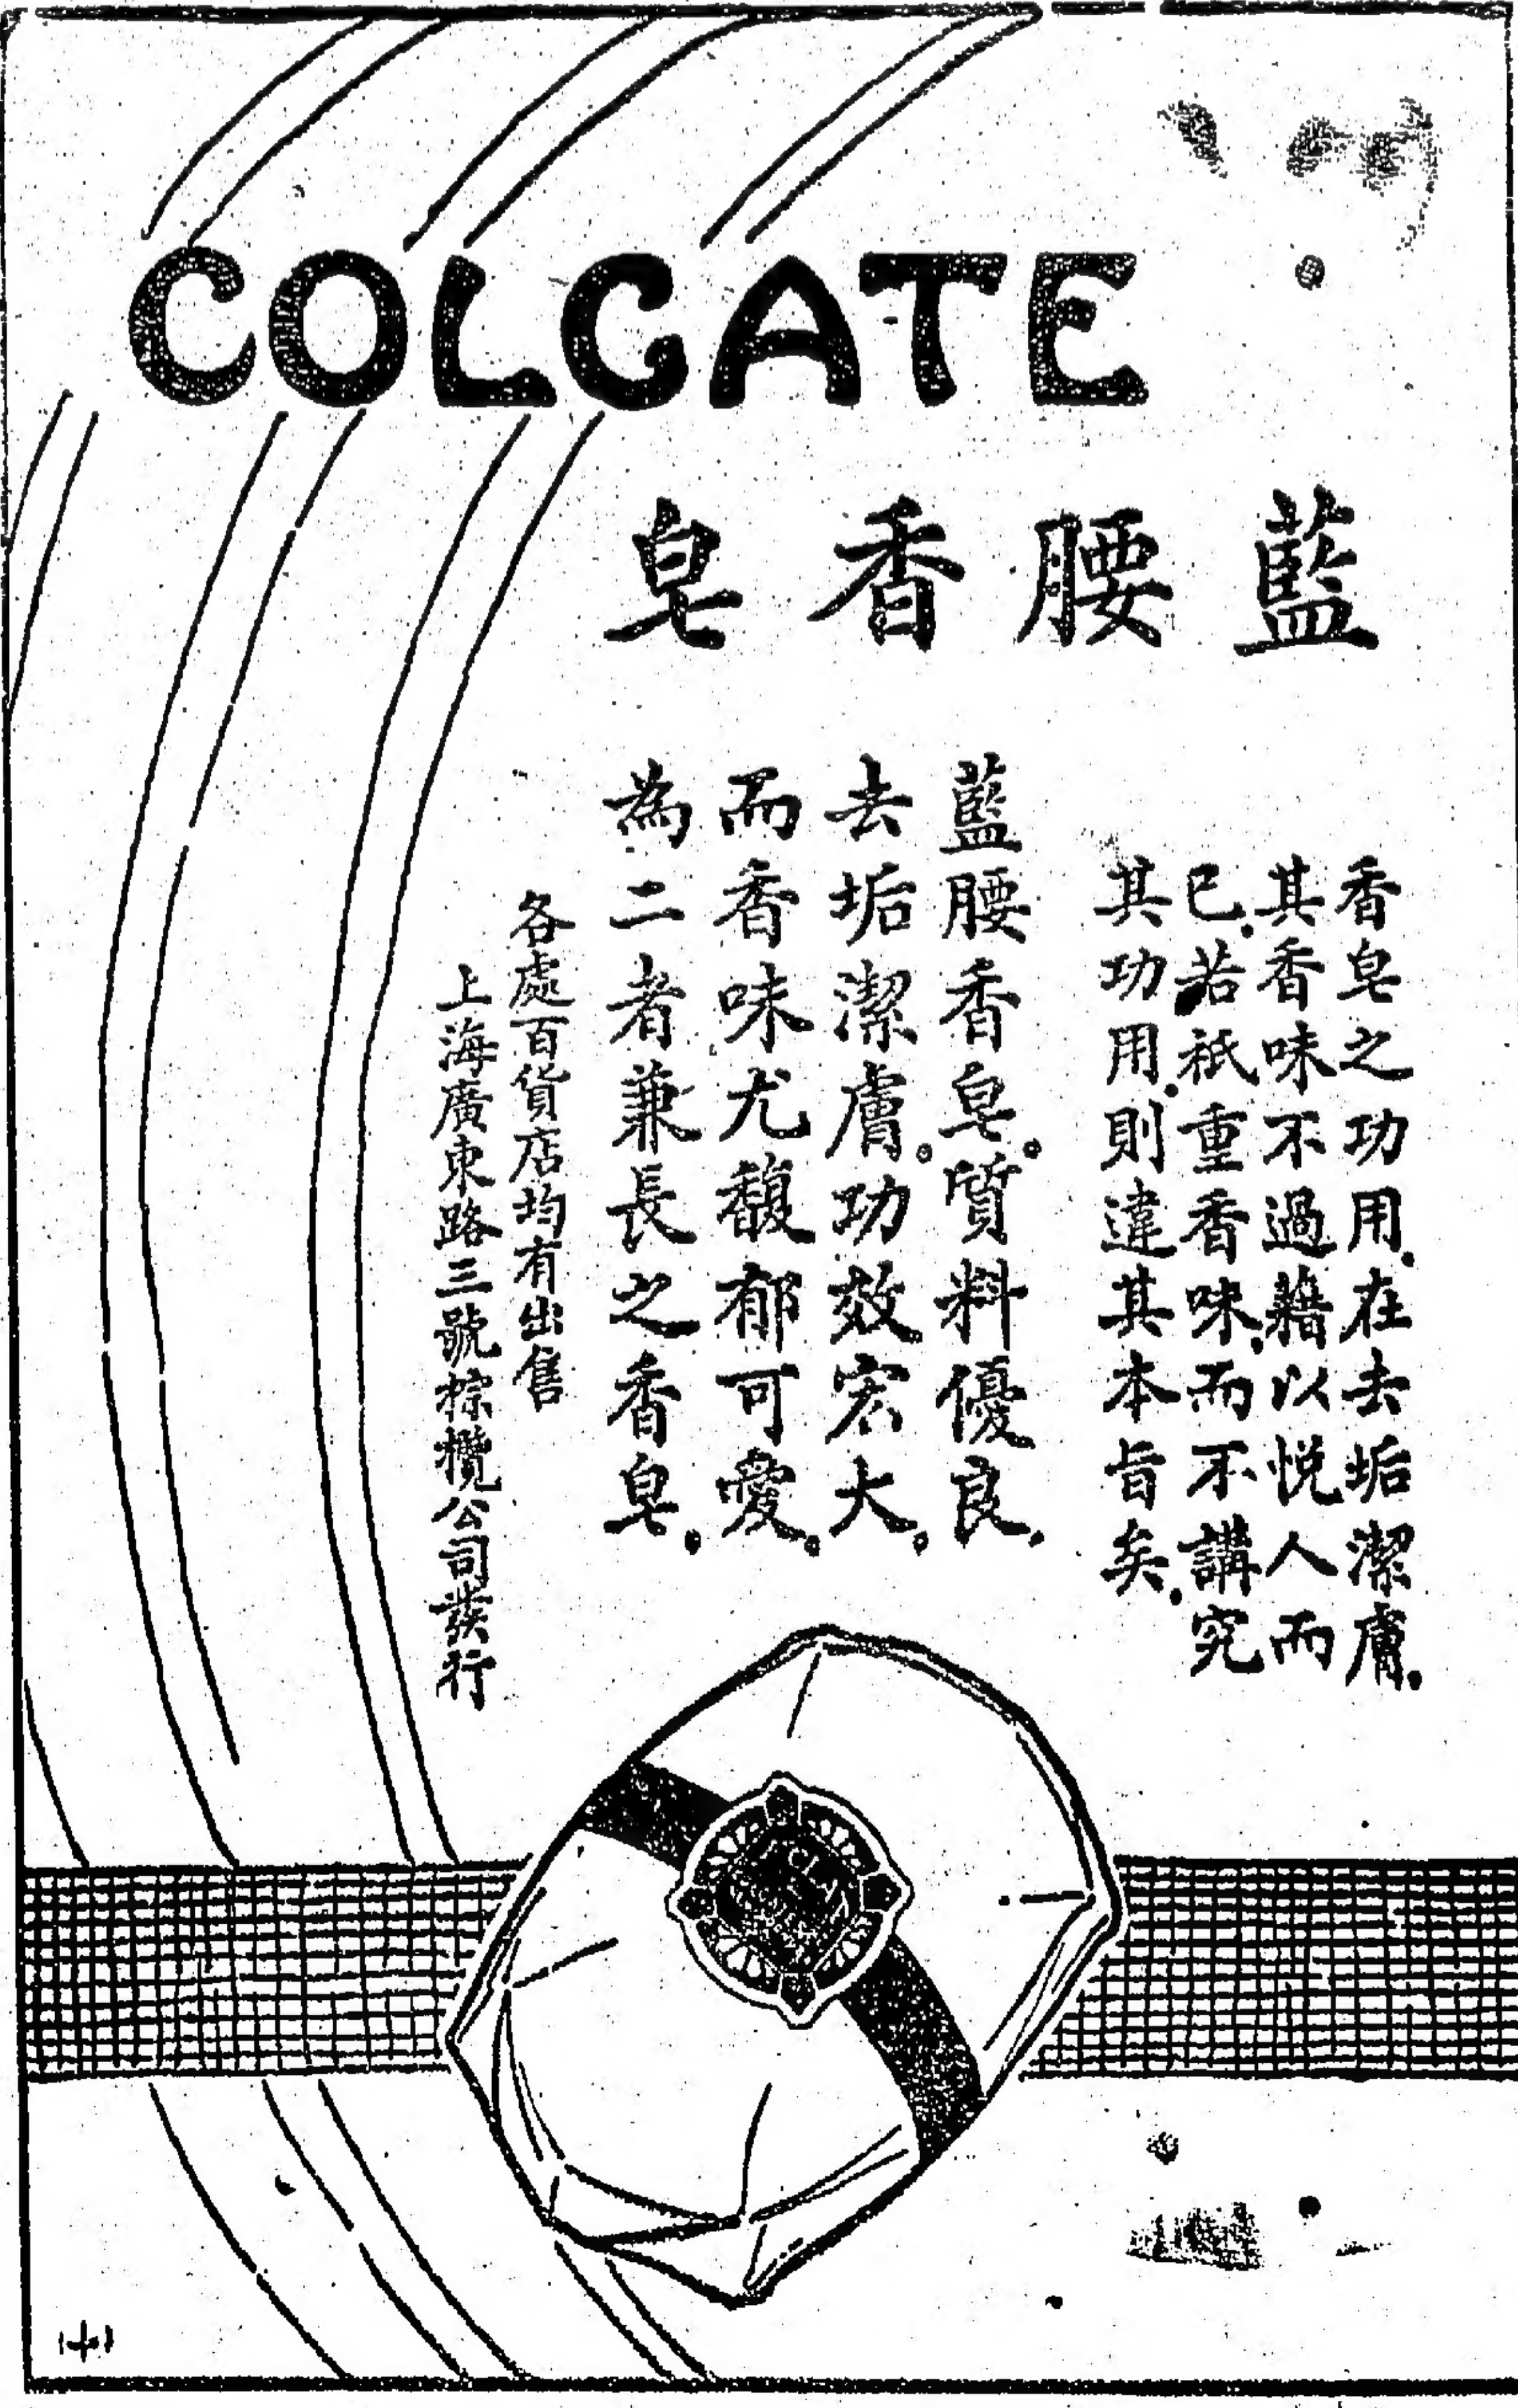 COLGATE
藍腰香皂
香皂之功用.在去垢潔膚.
其香味不過藉以悅人而
已.若祇重香味.而不講究
其功用.則違其本旨矣.
藍腰香皂。質料優良.
去垢潔膚。功效宏大。
而香味尤馥郁可愛。
為二者兼長之香皂.
各處百貨店均有出售
上海廣東路三號棕欖公司發行
(十)